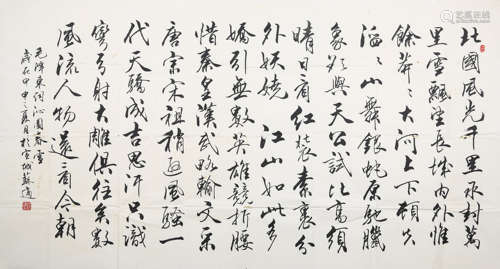 北國風光千里冰封萬
里雪飄望長城內外惟
餘莽〻大河上下頓失
滔〻山舞銀蛇原馳臘
象欲與天公試比高須
晴日看紅裝素裹分
外妖嬈 江山如此多
嬌引無數英雄競折腰
惜秦皇漢武略輸文采
唐宗宋祖稍遜風騷一
代天驕成吉思汗只識
彎弓射大雕俱往矣數
風流人物還看今朝
毛澤東詞沁園春雪
歲在甲申之夏月於宣城